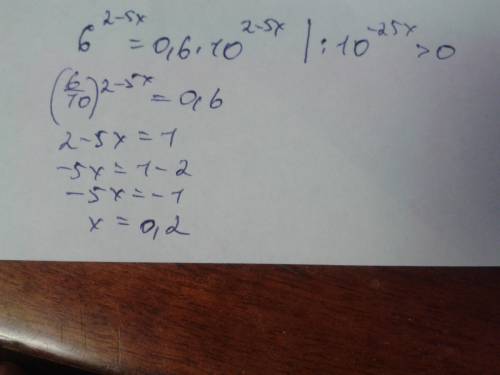 6^{2-5x} = 0,6 · 10^{2-5x} | : 10^{-25x} > 0
(6/10)^{2-5x} = 0,6
2-5x = 1
-5x = 1-2
-5x = -1
x = 0,2